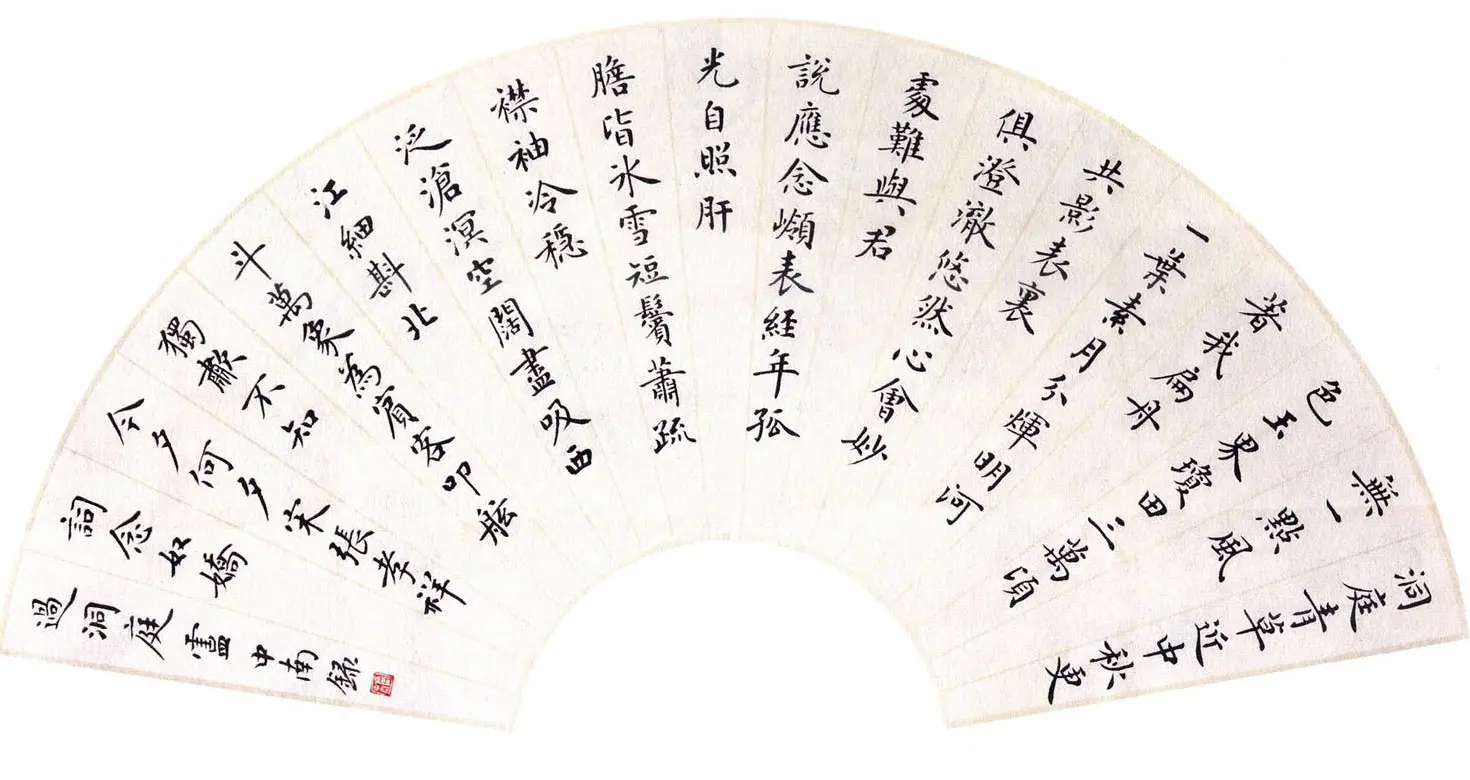 洞庭青草近中秋更
無一點風
色玉界瓊田三萬頃
著我扁舟
一葉素月分煇明河
共影表裏
俱澄澈悠然心會妙
處難與君
說應念嶺表經年孤
光自照肝
膽皆氷雪短鬢蕭疏
襟袖冷穩
泛滄溟空闊盡吸西
江細斟北
斗萬象為賓客叩舷
獨歗不知
今夕何夕宋張孝祥
詞念奴嬌
過洞庭盧中南錄